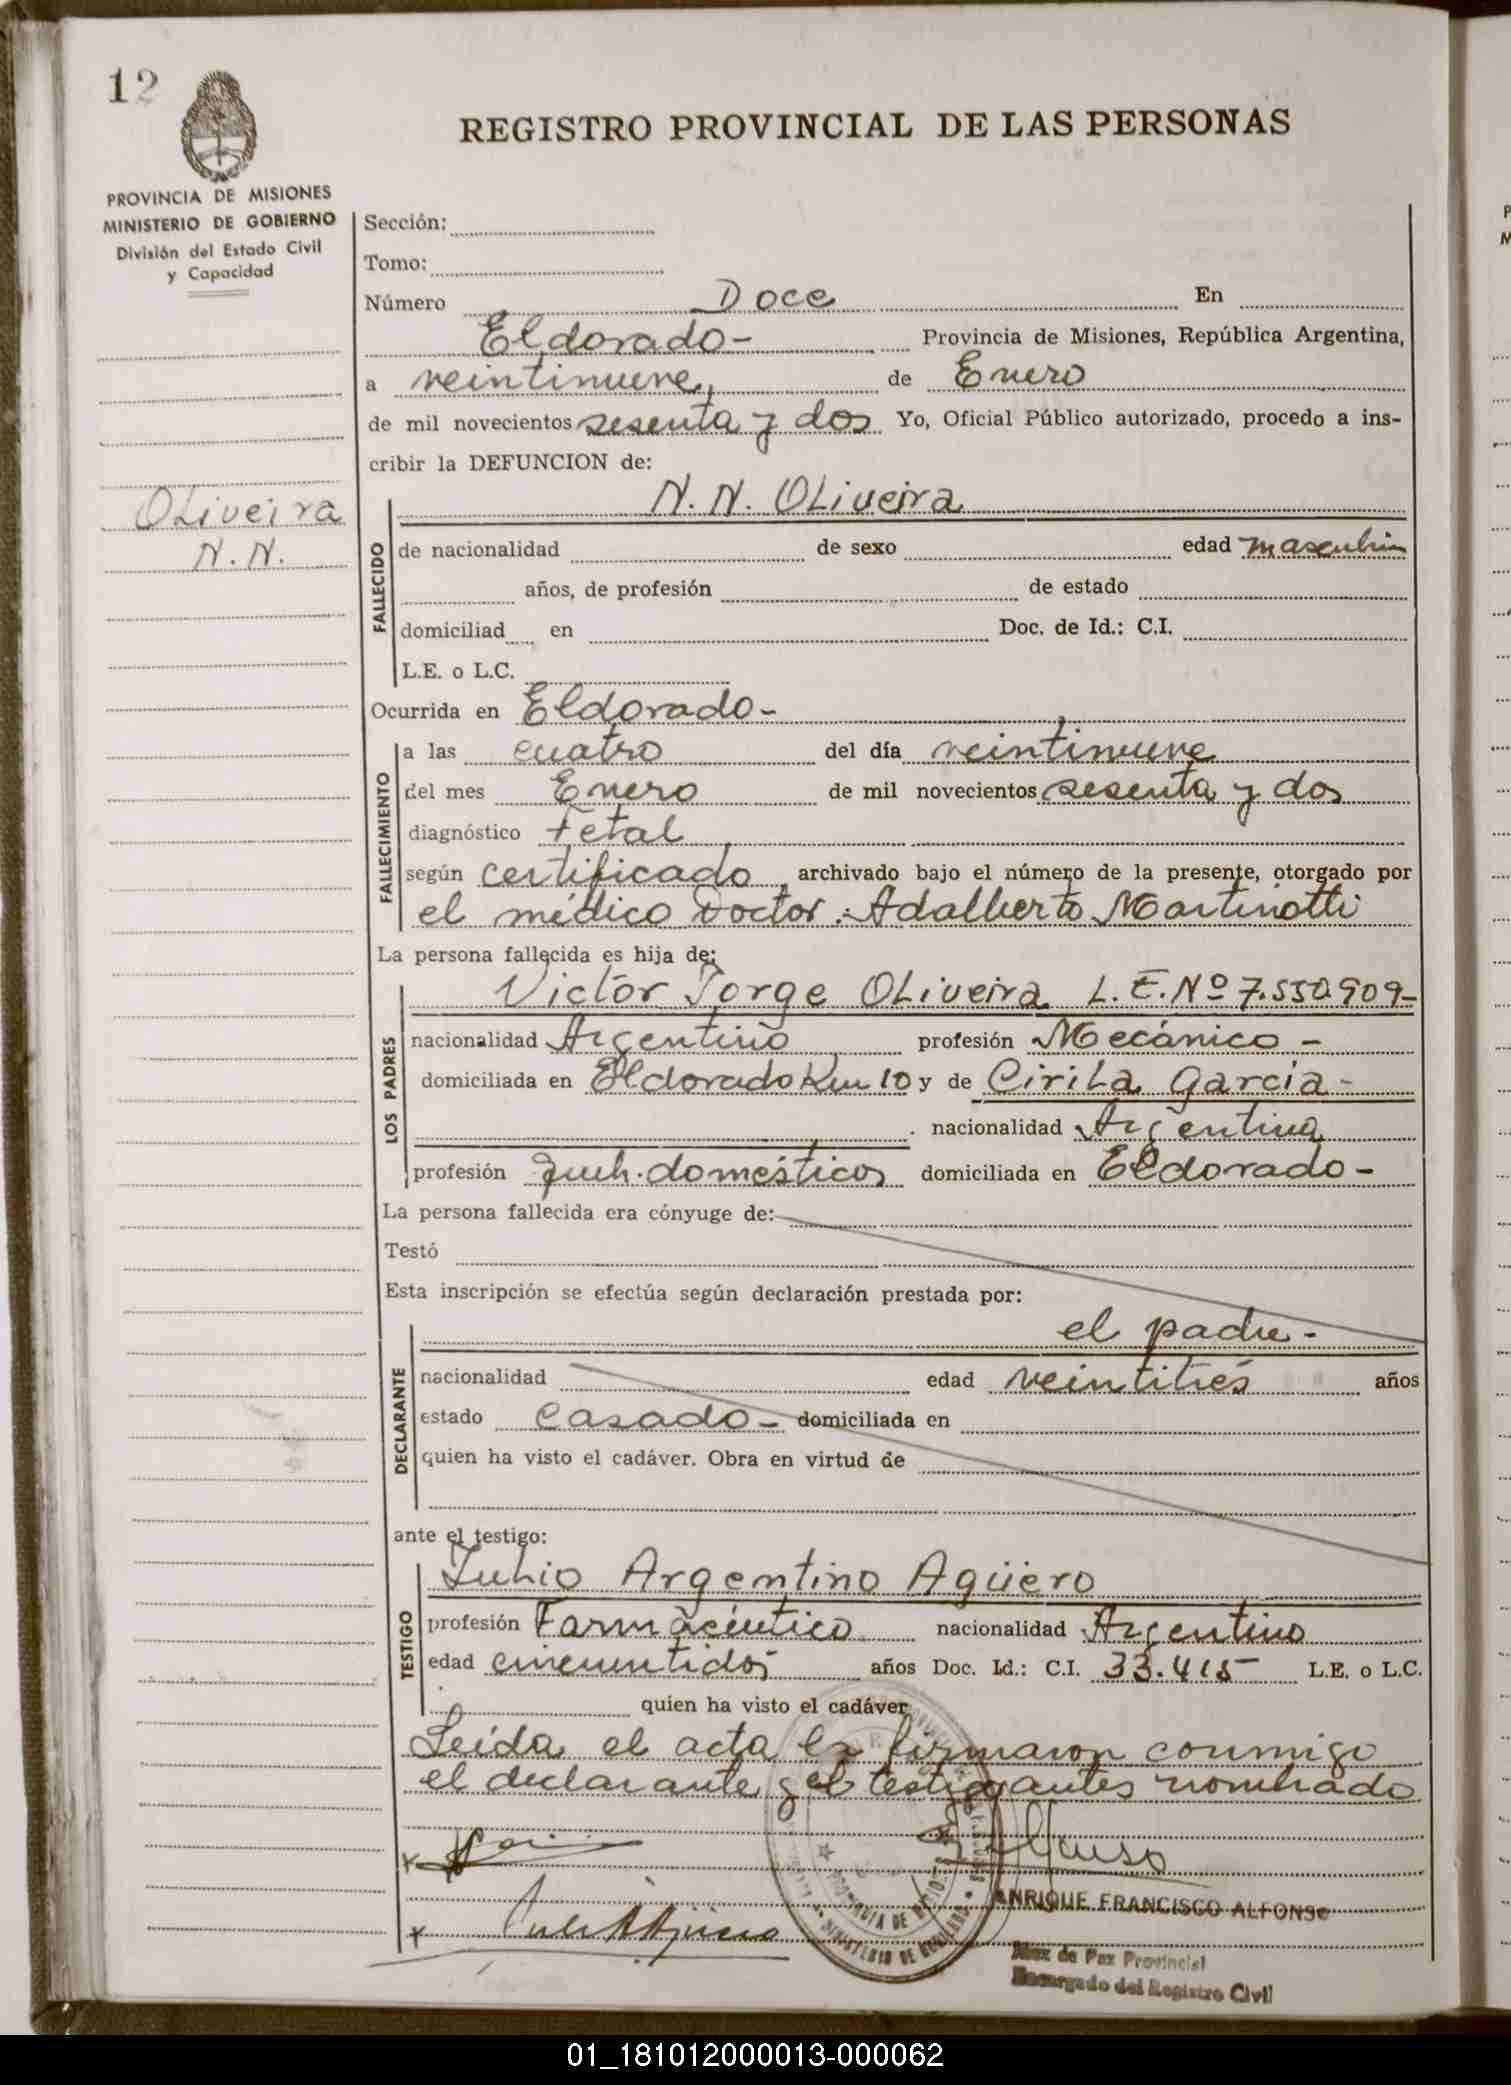 12
REGISTRO PROVINCIAL DE LAS PERSONAS
PROVINCIA DE MISIONES
MINISTERIO DE GOBIERNO
División del Estado Civil
y Capacidad
Sección:
Tomo:
Número Doce En
Eldorado- Provincia de Misiones, República Argentina,
a veintinueve, de Enero
de mil novecientos sesenta y dos Yo, Oficial Público autorizado, procedo a ins-
cribir la DEFUNCION de:
Oliveira
N.N.
N. N. Oliveira
FALLECIDO
de nacionalidad de sexo edad masculin
años, de profesión de estado
domiciliad en Doc. de Id.: C.I.
L.E. o L.C.
Ocurrida en Eldorado-
FALLECIMIENTO
a las cuatro del día veintinueve
del mes Enero de mil novecientos sesenta y dos
diagnóstico Fetal
según certificado archivado bajo el número de la presente, otorgado por
el médico Doctor: Adalberto Martinotti
La persona fallecida es hija de:
LOS PADRES
Victor Jorge Oliveira L.E.Nº 7.550.909-
nacionalidad Argentino profesión Mecánico -
domiciliada en Eldorado Km 10 y de Cirila Garcia-
nacionalidad Argentina
profesión queh. domésticos domiciliada en Eldorado-
La persona fallecida era cónyuge de:
Testó
Esta inscripción se efectúa según declaración prestada por:
DECLARANTE
el padre-
nacionalidad edad veintitrés años
estado casado- domiciliada en
quien ha visto el cadáver. Obra en virtud de
ante el testigo:
TESTIGO
Julio Argentino Agüero
profesión Farmacéutico nacionalidad Argentino
edad cincuentidós años Doc. Id.: C.I. 33.415 L.E. o L.C.
quien ha visto el cadáver
Leída el acta la firmaron conmigo
el declarante y el nombrado
ENRIQUE FRANCISCO ALFONSO
Juez de Paz Provincial
Encargado del Registro Civil
PROVINCIA DE MISIONES
MINISTERIO DE GOBIERNO
01_181012000013-000062